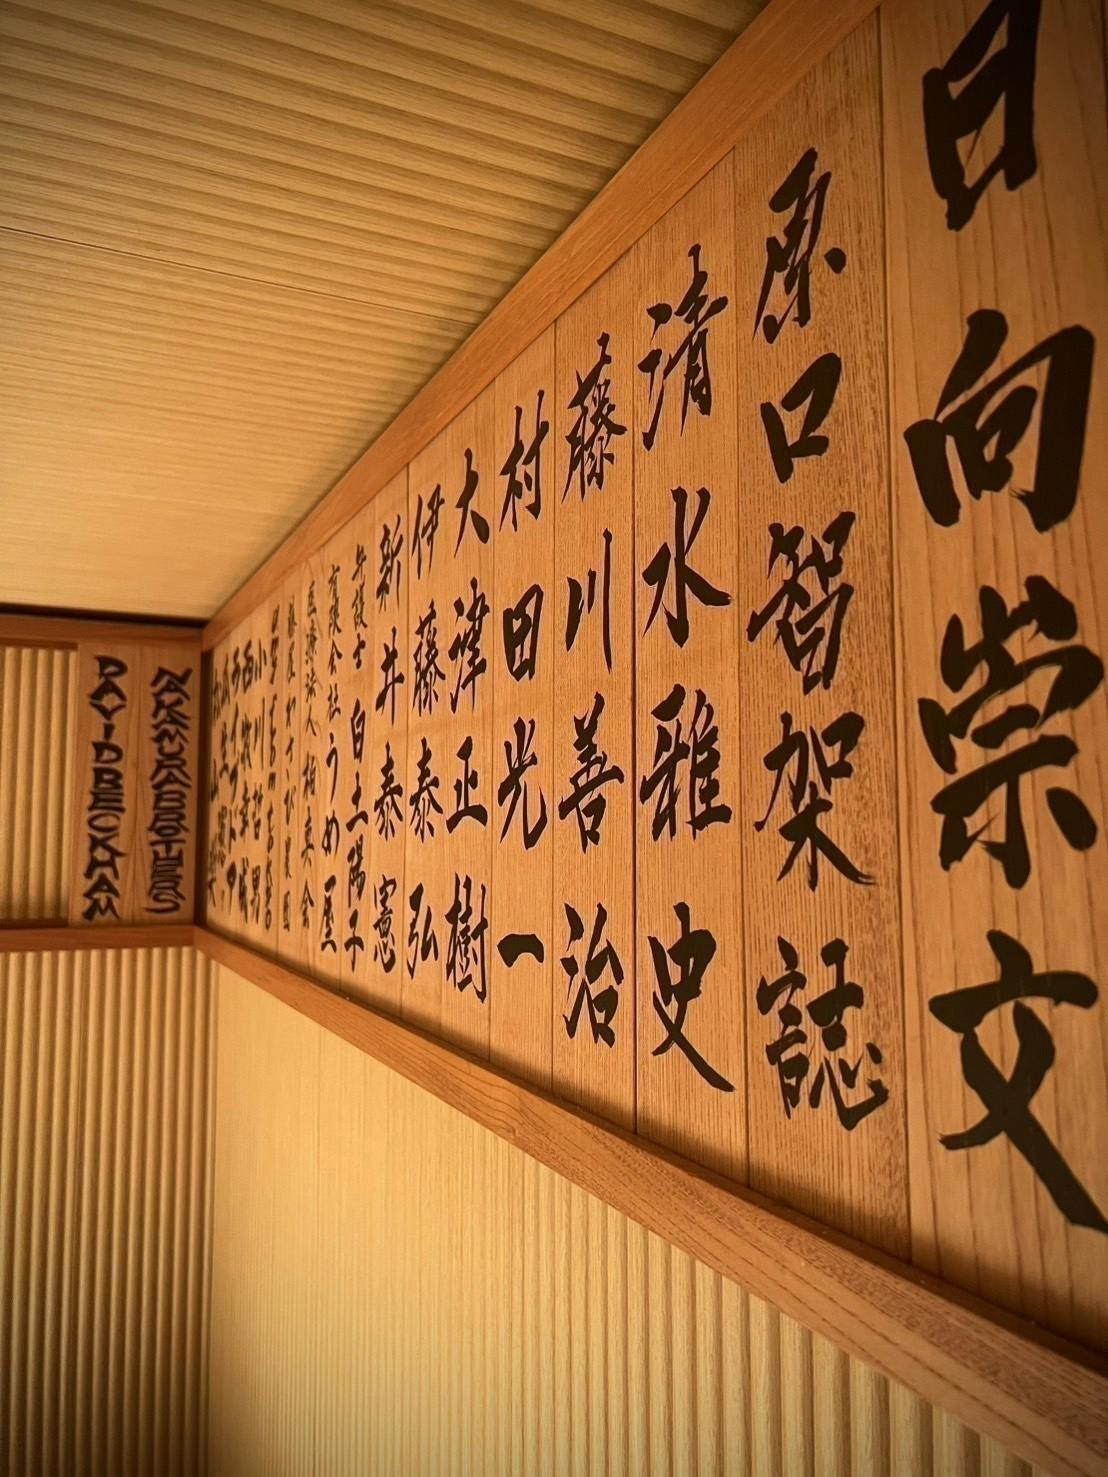 日向崇文
原口智架誌
清水雅史
藤川善治
村田光一
大津正樹
伊藤泰弘
新井泰憲
弁護士 白土陽子
有限会社うめ屋
医療法人 栃真会
小川哲男
NAKAMURA BROTHERS
DAVID BECKHAM